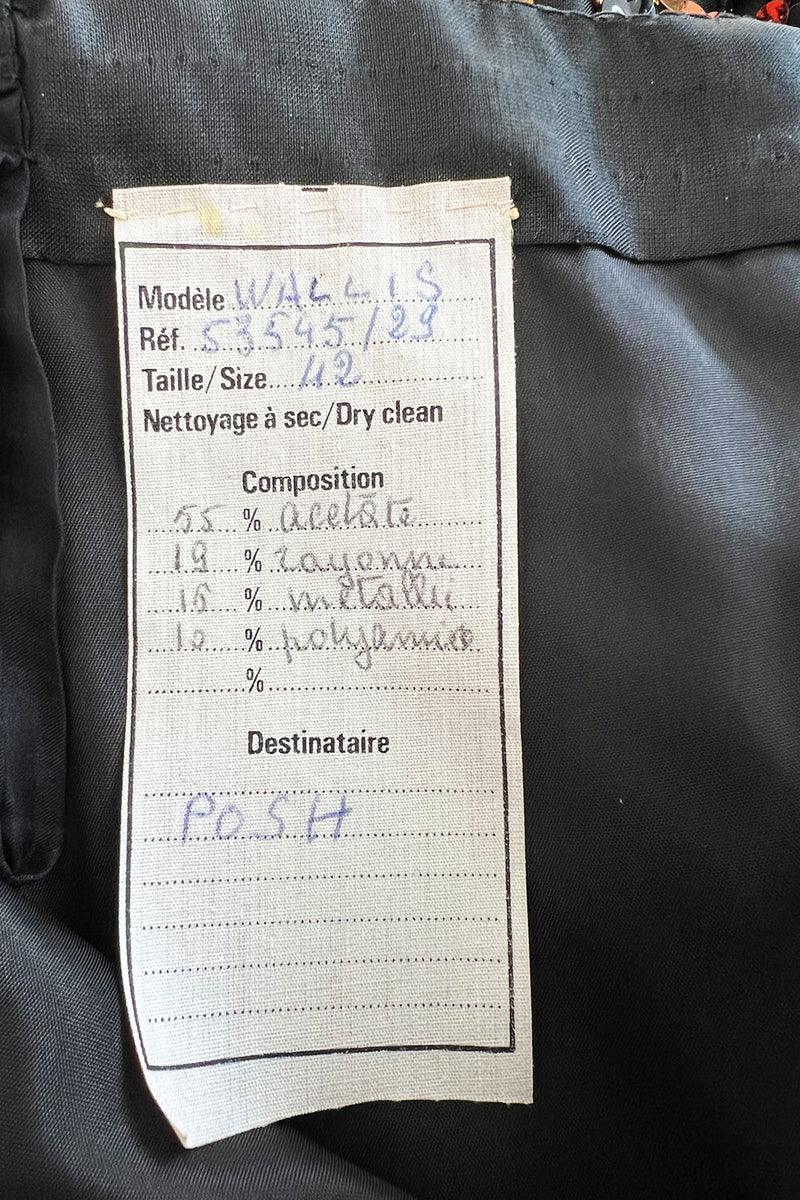 Modèle WALLIS
Réf. 53545/29
Taille/Size 42
Nettoyage à sec/Dry clean
Composition
55 % acétate
19 % rayonne
16 % métallic
10 % polyamide
%
Destinataire
POSH